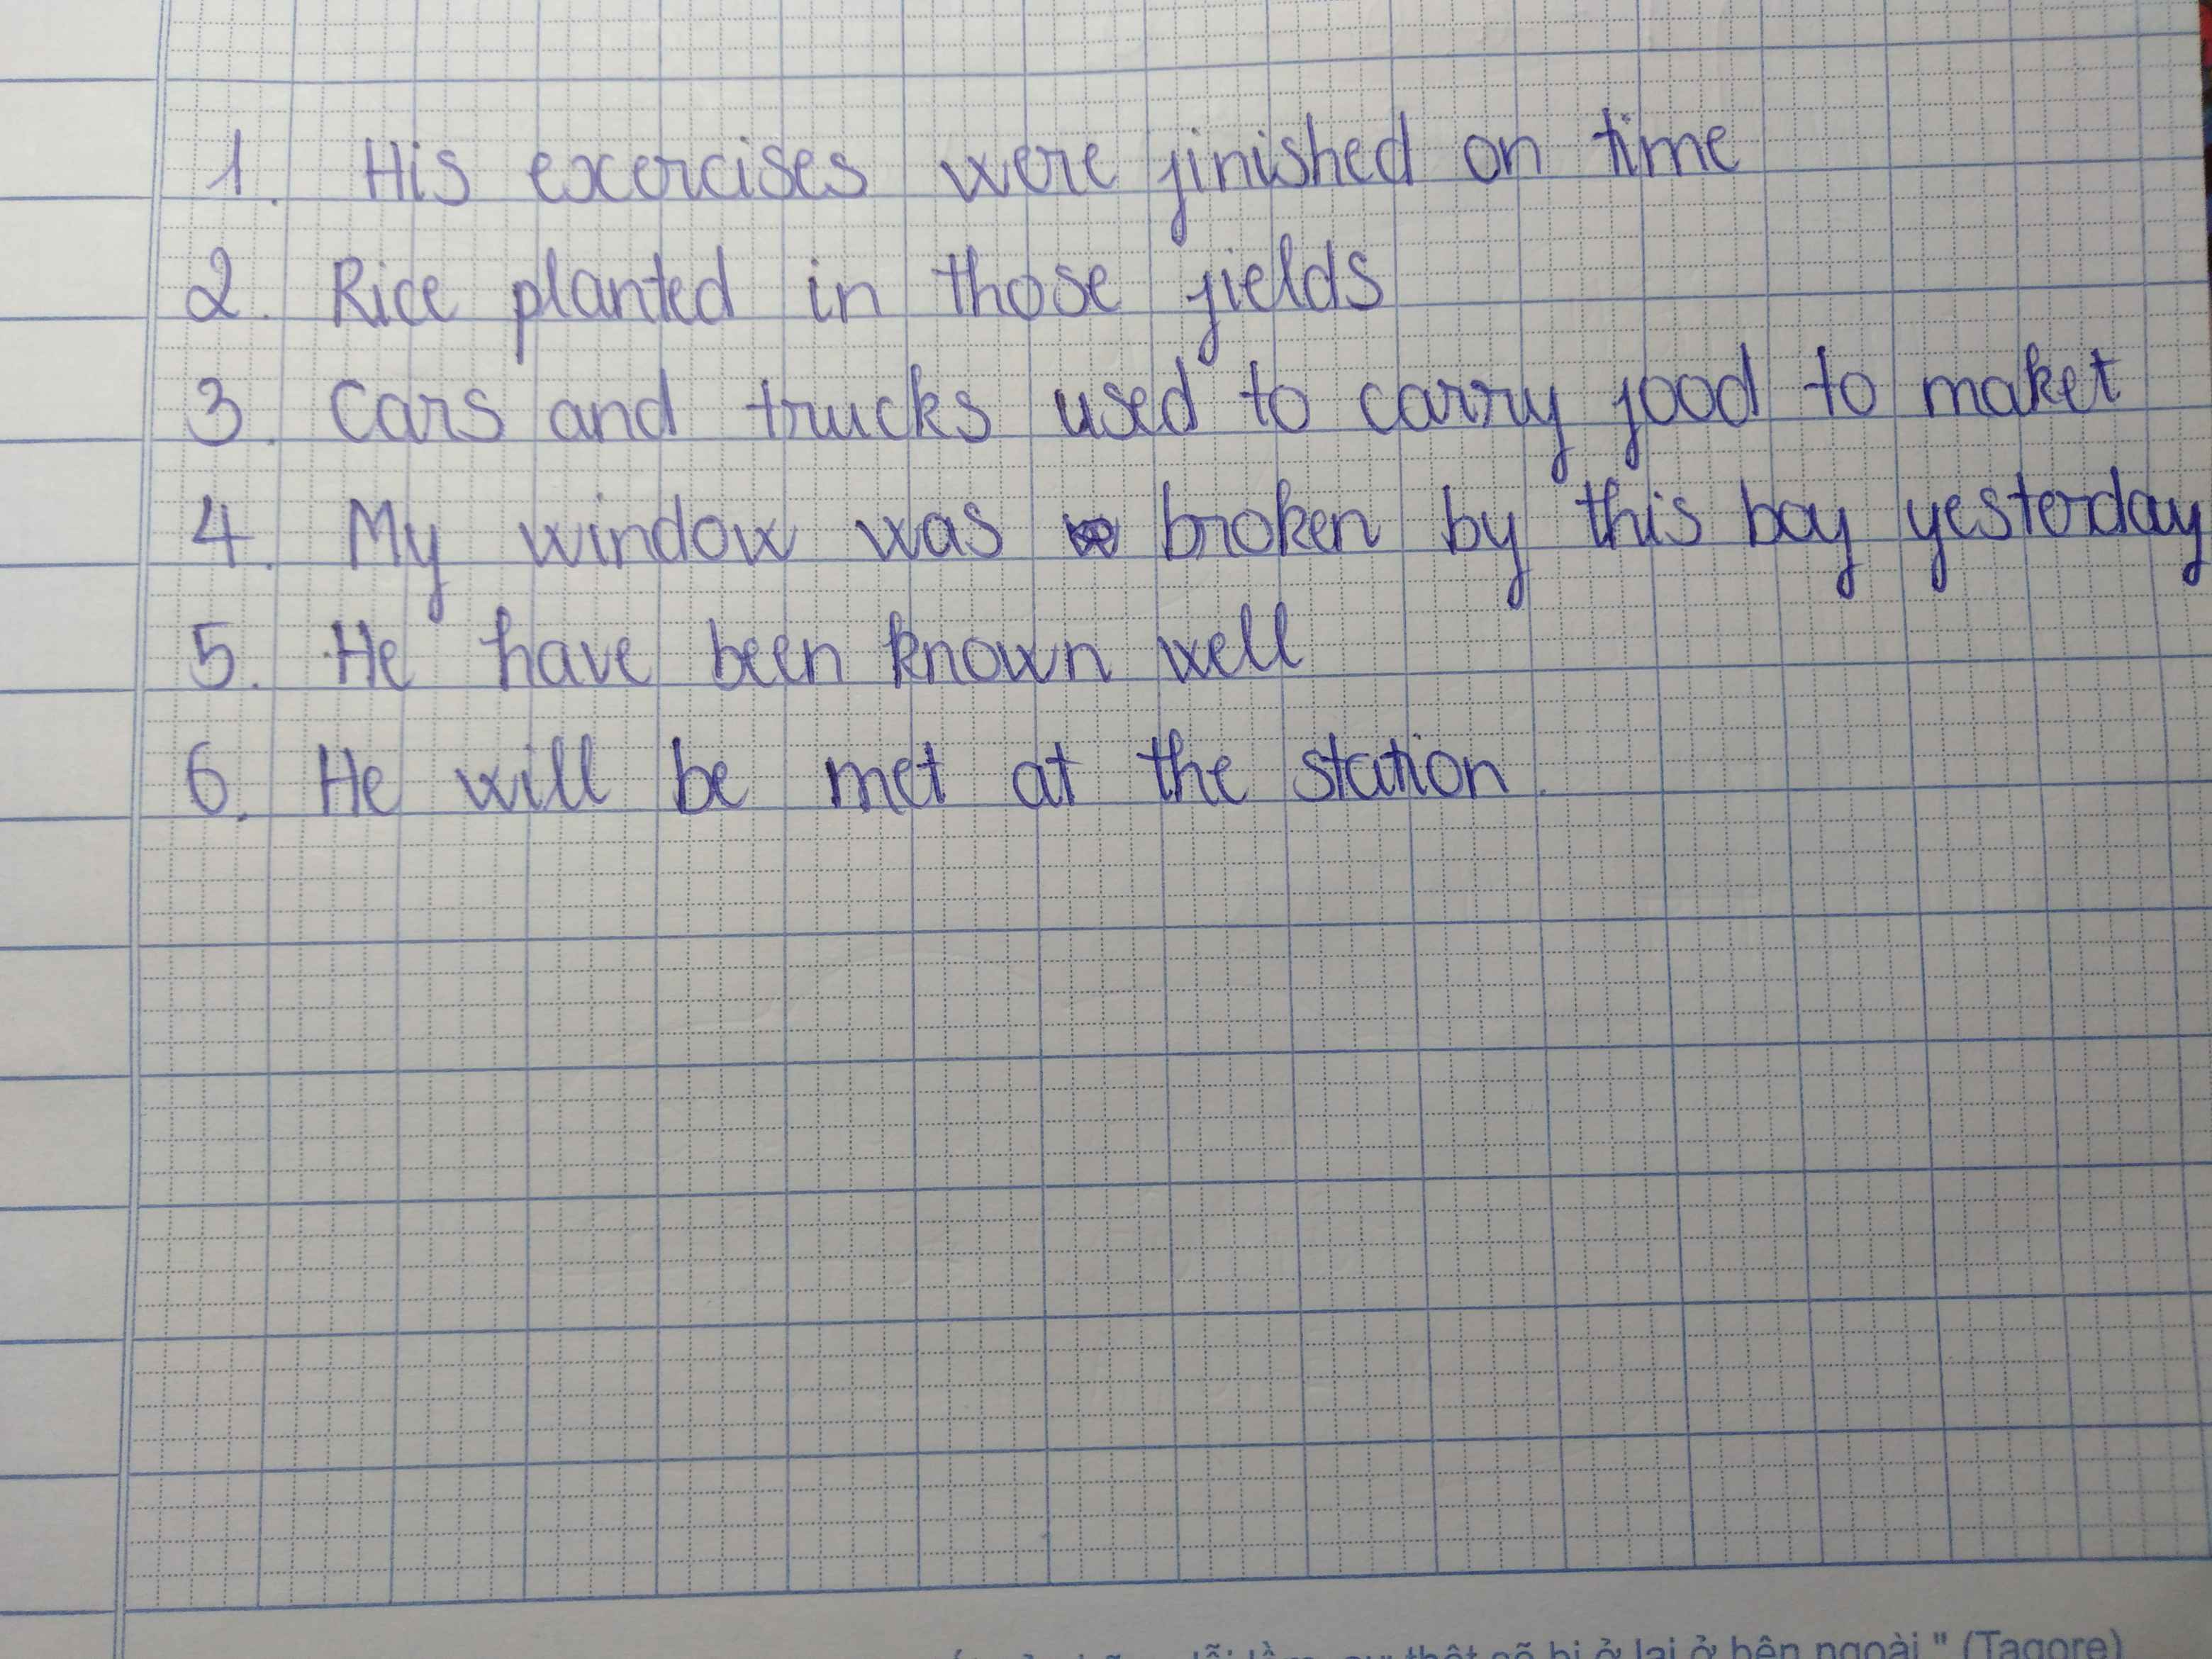 1. His exercises were finished on time
2. Rice planted in those fields
3. Cars and trucks used to carry food to maket
4. My window was broken by this boy yesterday
5. He have been known well
6. He will be met at the station.
sự thật sẽ bị ở lại ở bên ngoài." (Tagore)